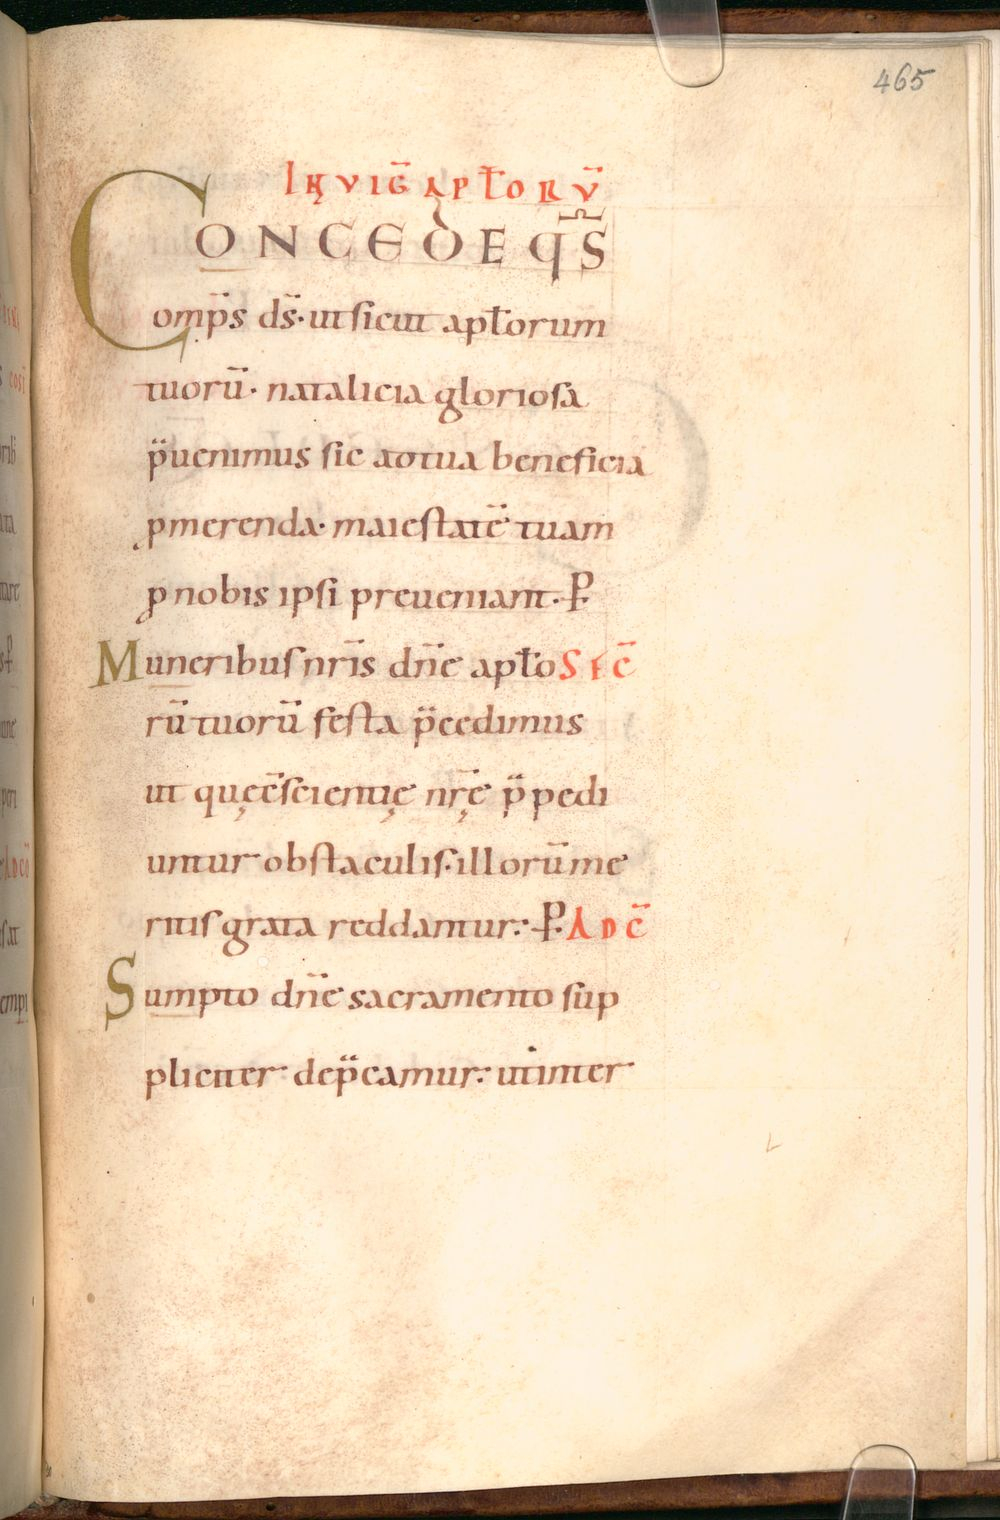 465
IN VIG̅ APŁORV̅
CONCEDE Q̅S
omp̅s ds̅· ut sicut apłorum
tuoru̅· natalicia gloriosa
p̅uenimus sic adtua beneficia
ꝓmerenda· maiestate̅ tuam
ꝓ nobis ipsi preueniant· P̵
Muneribus nr̅is dn̅e apło SEC̅
ru̅ tuoru̅ festa p̅cedimus
ut quę c̅scientię nr̅ę p̅pedi
untur obstaculis· illoru̅ me
ritis grata reddantur· P̵· AD C̅
Sumpto dn̅e sacramento sup
pliciter dep̅camur· ut inter